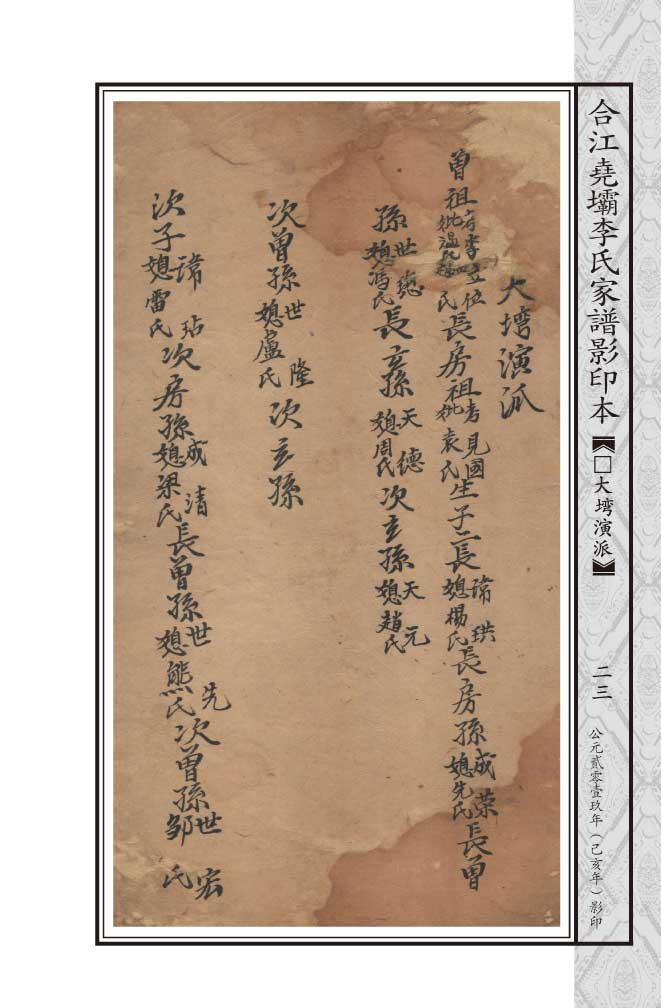 合江堯壩李氏家譜影印本【□大塆演派】 二三 公元貳零壹玖年（己亥年）影印
大塆演派
曾祖考李立位妣溫氏氏長房祖考見國妣袁氏生子二長琦珙媳楊氏長房孫成荣媳先氏長曾
孫世德媳馮氏長玄孫天德媳周氏次玄孫天元媳趙氏
次曾孫世隆媳盧氏次玄孫
次子琦玷媳雷氏次房孫成清媳梁氏長曾孫世先媳熊氏次曾孫世宏鄒氏